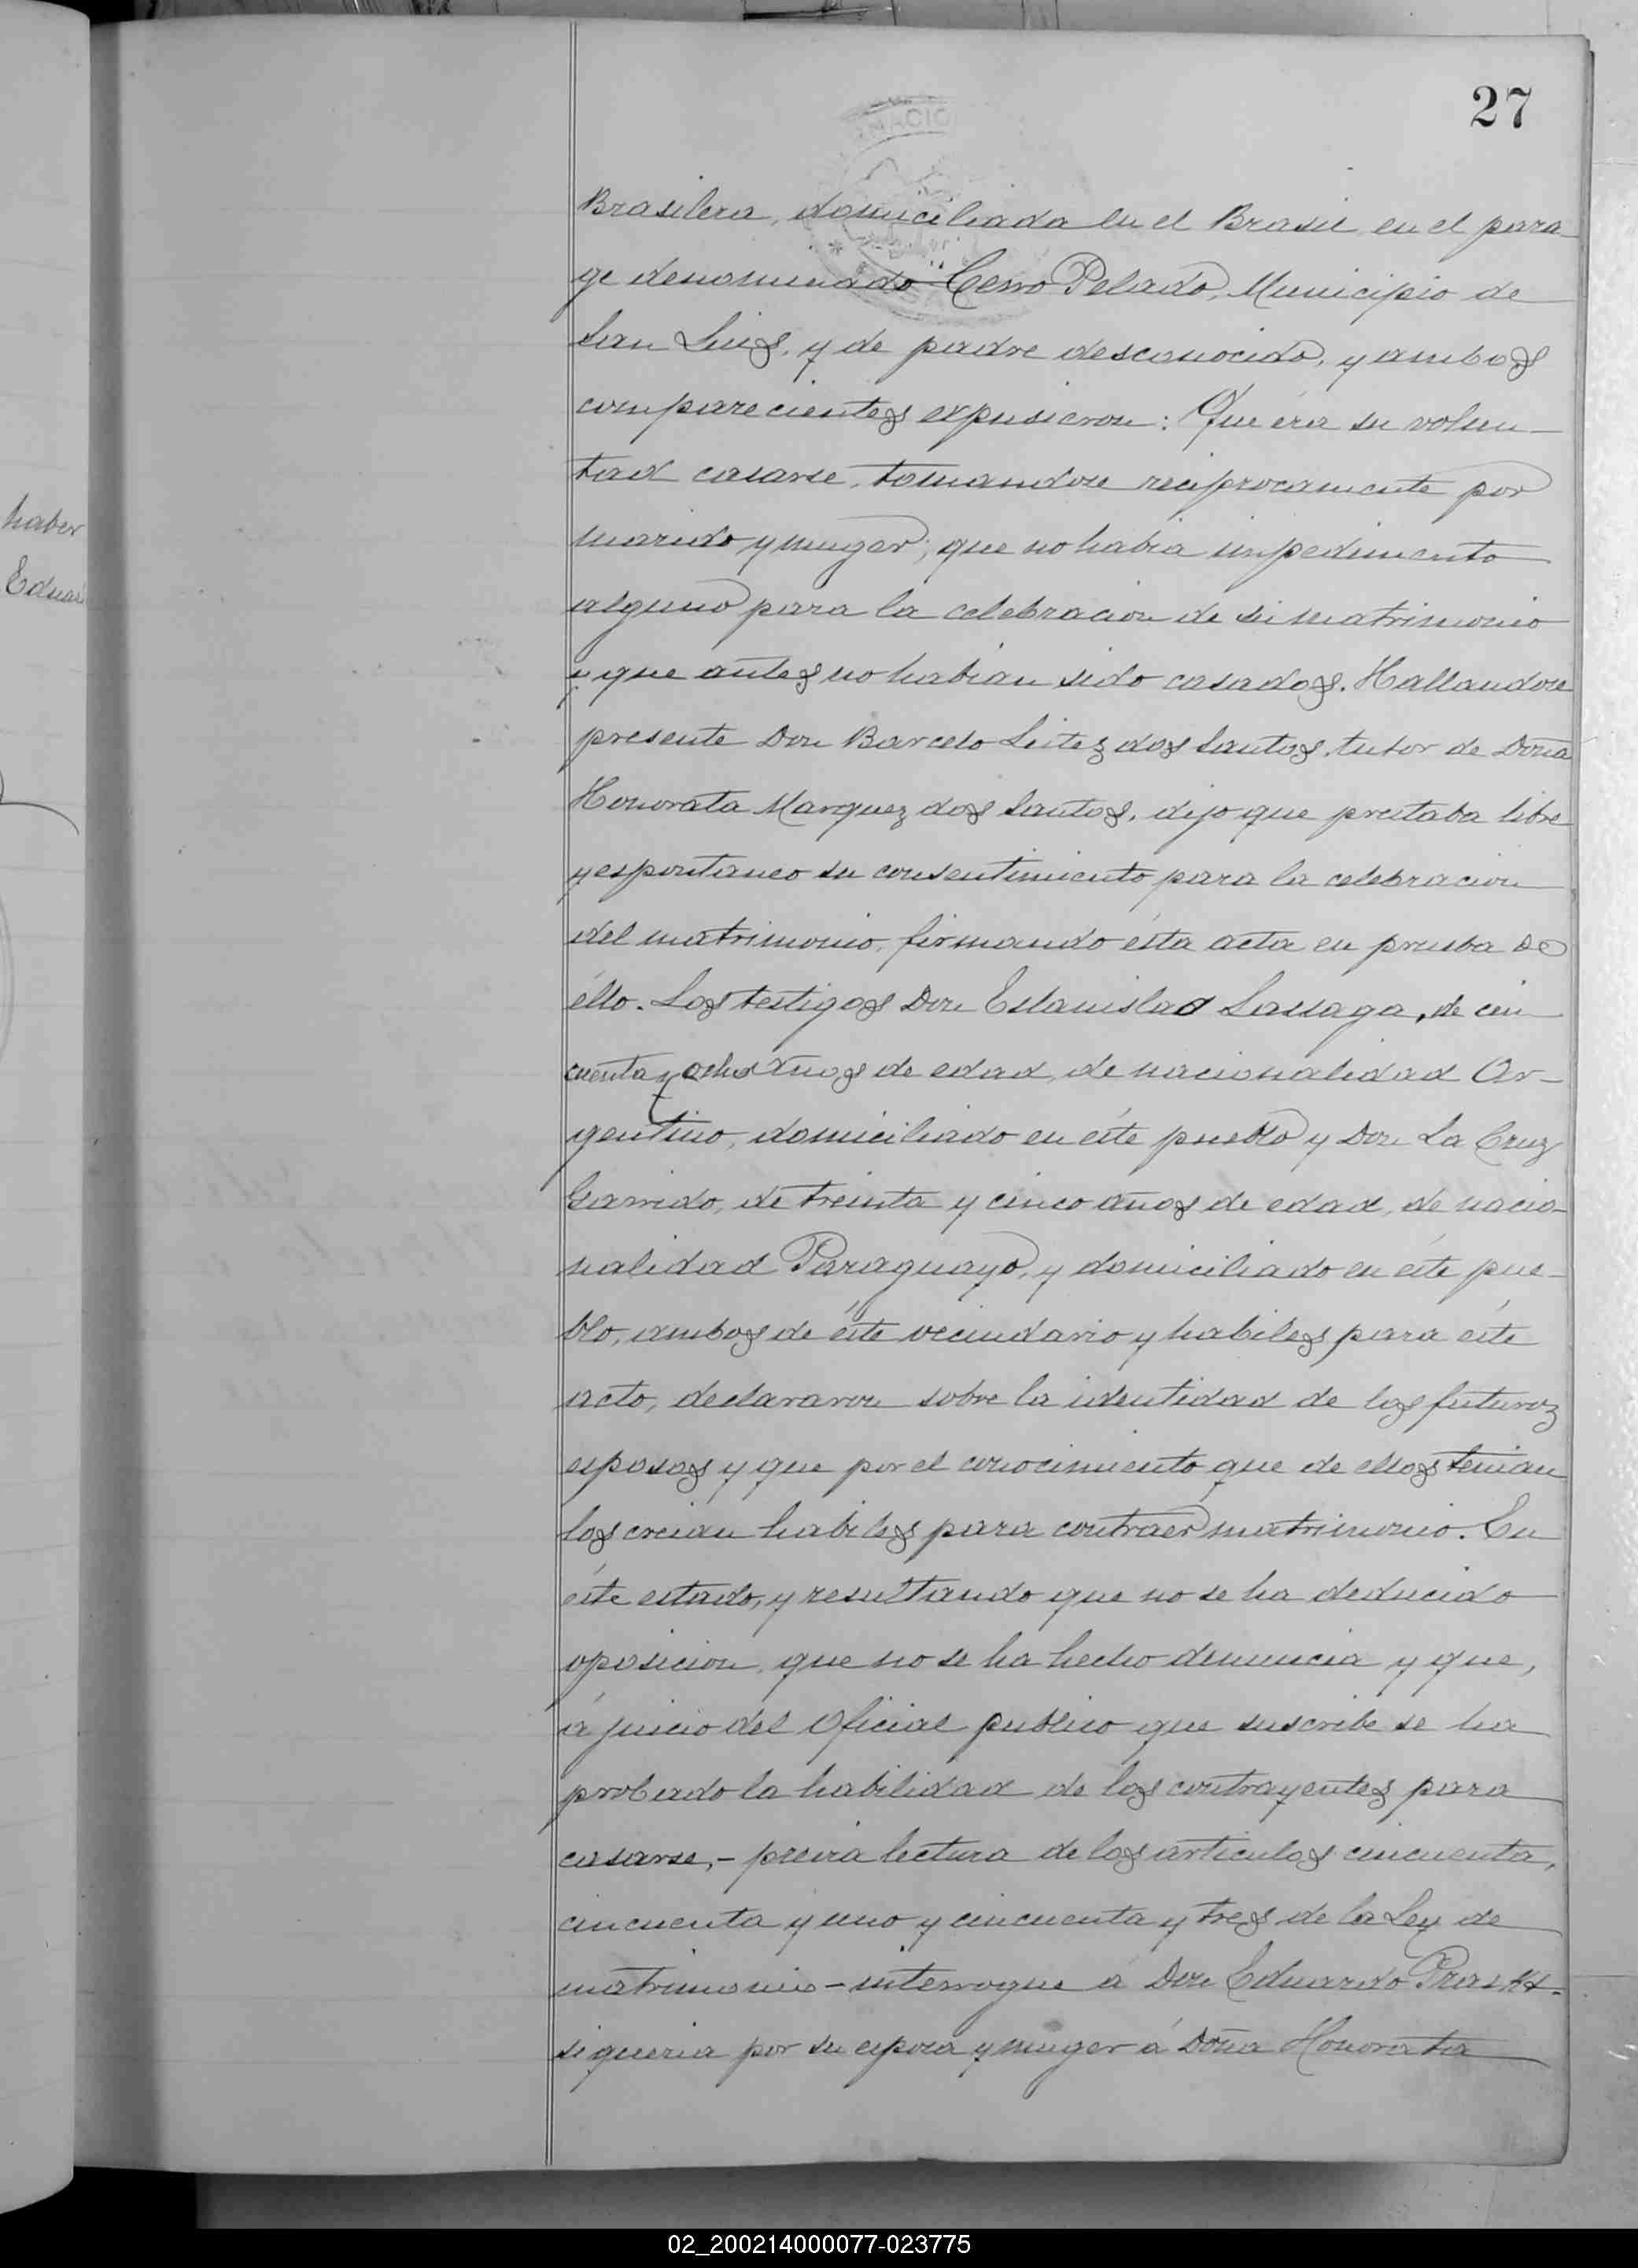 27
Brasilera, domiciliada en el Brasil en el para-
ge denominado Cerro Pelado, Municipio de
San Luis, y de padre desconocido, y ambos
comparecientes expusieron: Que éra su volun-
tad casarse, tomandose reciprocamente por
marido y muger; que no habia impedimento
alguno para la celebracion de su matrimonio
y que antes no habian sido casados. Hallandose
presente Don Barcelo Leites dos Santos, tutor de Doña
Honorata Marquez dos Santos, dijo que prestaba libre
y espontaneo su consentimiento para la celebracion
del matrimonio, firmando ésta acta en prueba de
éllo. Los testigos Don Estanislao Lassaga, de cin
cuenta y ocho años de edad, de nacionalidad Ar-
gentino, domiciliado en éste pueblo y Don La Cruz
Garrido, de treinta y cinco años de edad, de nacio-
nalidad Paraguayo, y domiciliado en éste pue-
blo, ambos de éste vecindario y habiles para éste
acto, declararon sobre la identidad de los futuros
esposos y que por el conocimiento que de ellos tenian
los creian habiles para contraer matrimonio. En
éste estado, y resultando que no se ha deducido
oposicion, que no se ha hecho denuncia y que,
á juicio del Oficial publico que suscribe se ha
probado la habilidad de los contrayentes para
casarse,- previa lectura de los articulos cincuenta,
cincuenta y uno y cincuenta y tres de la Ley de
matrimonio - interrogue á Don Eduardo
si queria por su esposa y muger á Doña Honorata
haber
Eduar
02_200214000077-023775